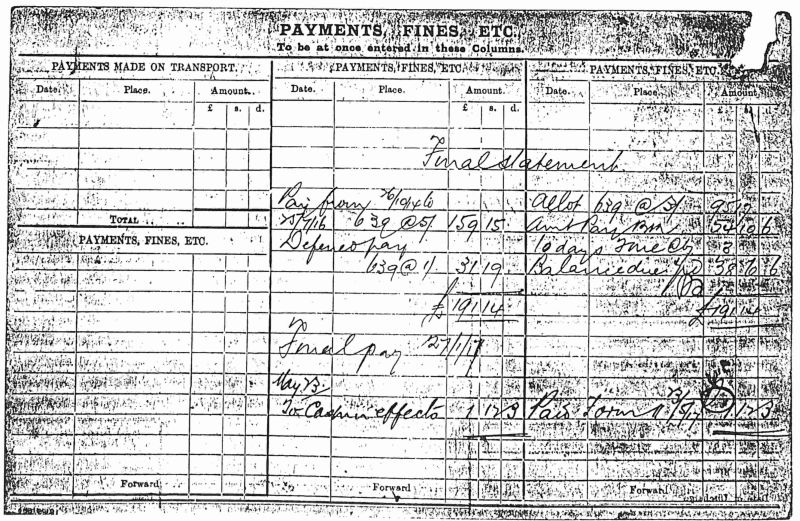 PAYMENTS, FINES, ETC.
To be at once entered in these Columns.
PAYMENTS MADE ON TRANSPORT.
Date. Place. Amount.
£ s. d.
TOTAL
PAYMENTS, FINES, ETC.
Forward
PAYMENTS, FINES, ETC.
Date. Place. Amount.
£ s. d.
Final statement
Pay from
639 @ 5/ 159 15
Defered pay
639 @ 1/ 31 19
£ 191 14
Final pay 27/1/17
May 23
To Cash in effects 1 12 3
Forward
PAYMENTS, FINES, ETC.
Date. Place. Amount.
£ s. d.
Allot 639 @ 3/ 95
Amt Pay Bk 54 10 6
10 days Fine @ 3
Balance due 38 6
£ 191 14
Paid Form 1 12 3
Forward